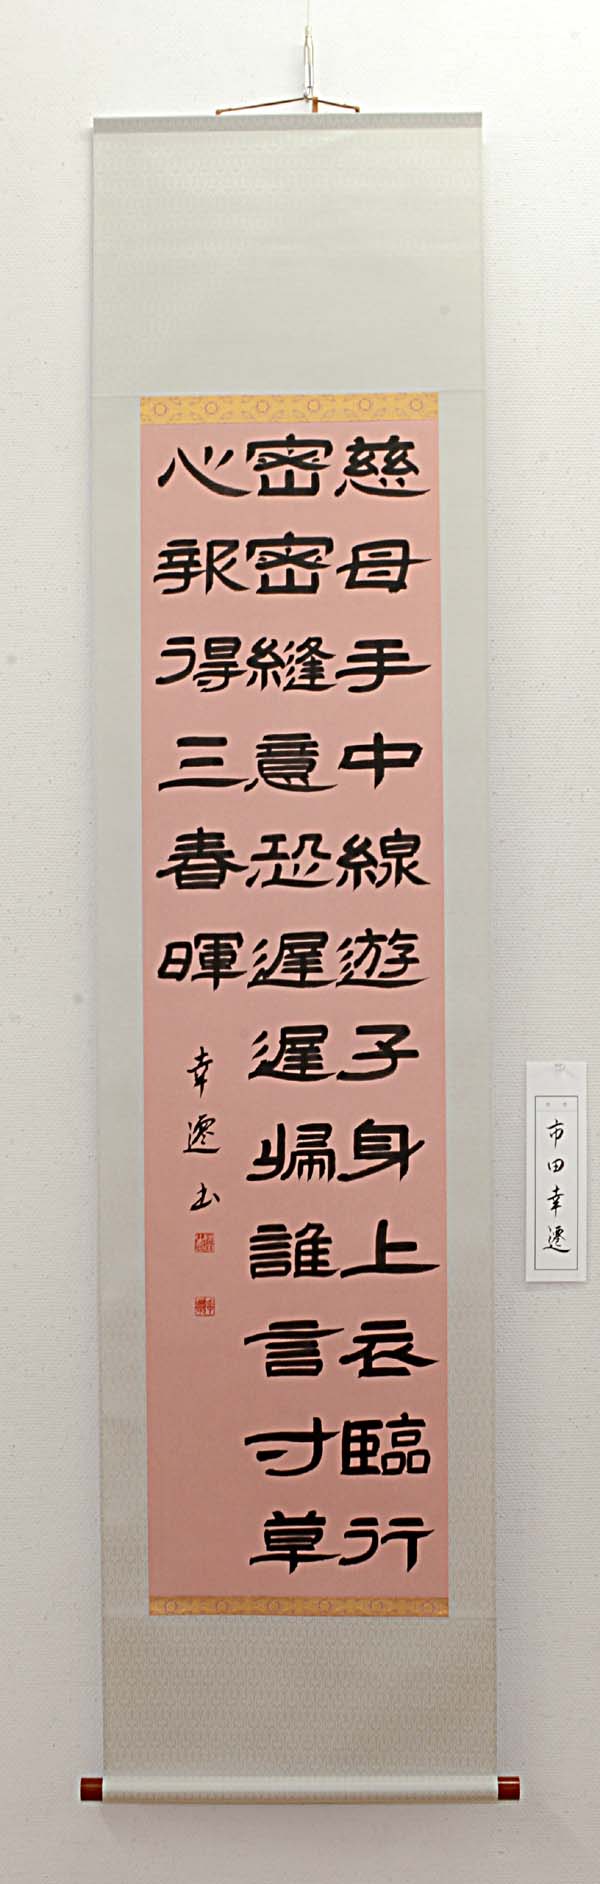 慈母手中線遊子身上衣臨行
密密縫意恐遲遲帰誰言寸草
心報得三春暉
幸遷书
市田幸遷